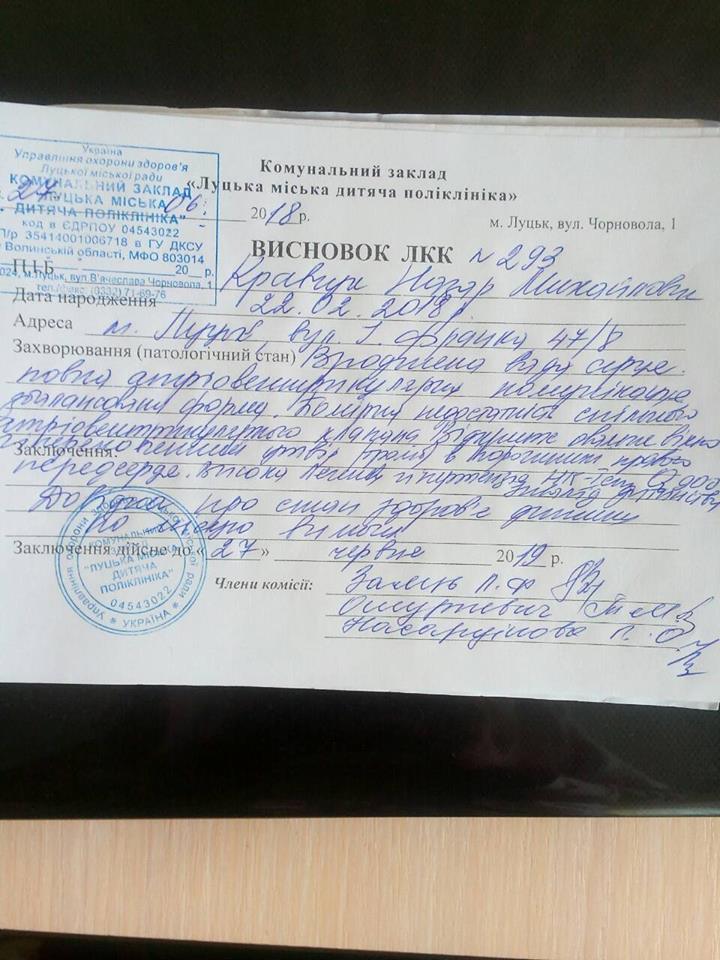 Україна
Управління охорони здоров'я
Луцької міської ради
КОМУНАЛЬНИЙ ЗАКЛАД
"ЛУЦЬКА МІСЬКА
ДИТЯЧА ПОЛІКЛІНІКА"
код в ЄДРПОУ 04543022
П/р 35414001006718 в ГУ ДКСУ
Волинській області, МФО 803014
м.Луцьк, вул.В'ячеслава Чорновола, 1
тел./факс (0332)71-69-76
Комунальний заклад
«Луцька міська дитяча поліклініка»
27 06. 2018р.
м. Луцьк, вул. Чорновола, 1
ВИСНОВОК ЛКК № 293
П.І.Б. Кравчук Назар Михайлович
20 р.
Дата народження 22.02.2018р.
Адреса м. Луцьк, вул. І. Франка 47/8
Захворювання (патологічний стан) Вроджена вада серця.
повна атріовентрикулярна комунікація
балансована форма. Помірна недостатність спільного
атріовентрикулярного клапана Відкрите овальне вікно
Заключення:
передсердя. Висока легенева гіпертензія НК-
Довідка про стан здоров'я дитини
по вимоги
Заключення дійсне до « 27 » червня 2019 р.
Члени комісії:
Управління охорони здоров'я Луцької міської ради
КОМУНАЛЬНИЙ
ЗАКЛАД
"ЛУЦЬКА МІСЬКА
ДИТЯЧА
ПОЛІКЛІНІКА"
04543022
* УКРАЇНА *